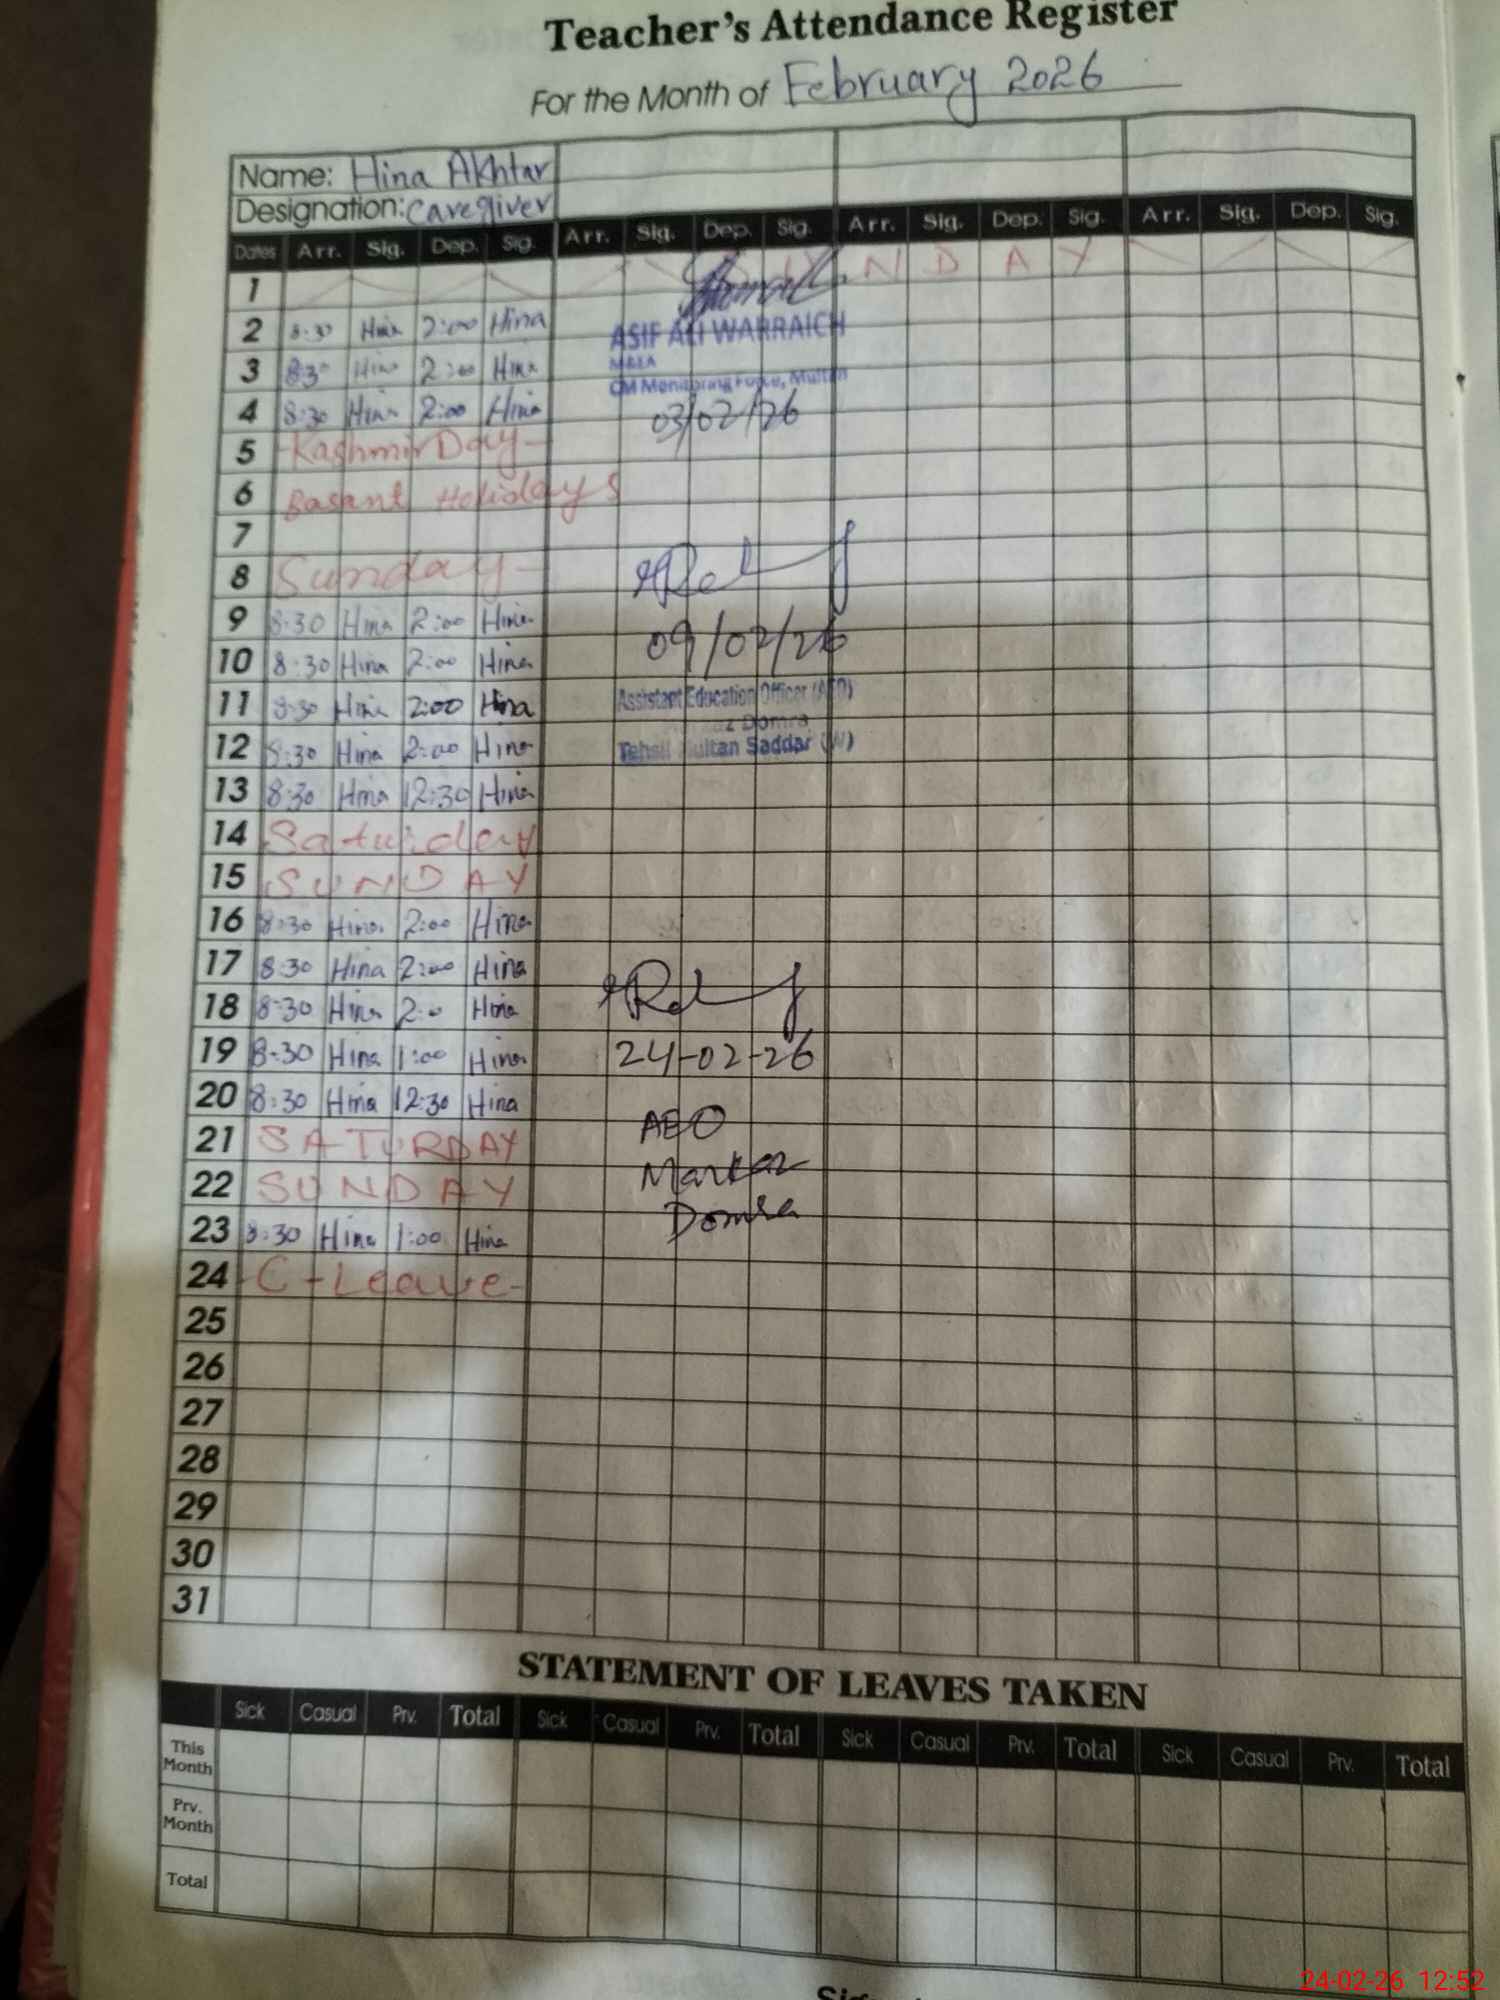 Teacher's Attendance Register
For the Month of February 2026
Name: Hina Akhtar
Designation: Caregiver
Dates Arr. Sig. Dep. Sig. Arr. Sig. Dep. Sig. Arr. Sig. Dep. Sig. Arr. Sig. Dep. Sig.
1 S U N D A Y
2 8:30 Hina 2:00 Hina
ASIF ALI WARRAICH
3 8:30 Hina 2:00 Hina
MEA
CM Monitoring Force, Multan
4 8:30 Hina 2:00 Hina 03/02/26
5 Kashmir Day
6 Basant Holidays
7
8 Sunday
9 8:30 Hina 2:00 Hina 09/02/26
10 8:30 Hina 2:00 Hina
11 8:30 Hina 2:00 Hina Assistant Education Officer (AEO)
Domra
12 8:30 Hina 2:00 Hina Tehsil Multan Saddar (W)
13 8:30 Hina 12:30 Hina
14 Saturday
15 SUNDAY
16 8:30 Hina 2:00 Hina
17 8:30 Hina 2:00 Hina
18 8:30 Hina 2:0 Hina
19 8:30 Hina 1:00 Hina 24-02-26
20 8:30 Hina 12:30 Hina AEO
21 SATURDAY Markaz
22 SUNDAY Domra
23 8:30 Hina 1:00 Hina
24 -C-Leave-
25
26
27
28
29
30
31
STATEMENT OF LEAVES TAKEN
Sick Casual Prv. Total Sick Casual Prv. Total Sick Casual Prv. Total Sick Casual Prv. Total
This Month
Prv. Month
Total
24-02-26 12:52